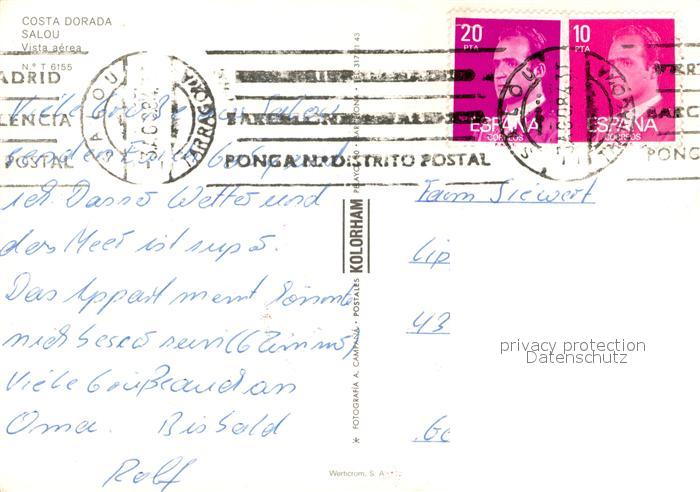 COSTA DORADA
SALOU
Vista aérea
N.º T 6155
20
PTA
ESPAÑA
CORREOS
10
PTA
ESPAÑA
CORREOS
ADRID
LENCIA
POSTAL
SALOU
BARCELONA VALENCIA
PONGA N.º DISTRITO POSTAL
PONG
Viele Grüße aus Salou
senden Euch
ich. Das Wetter und
das Meer ist super.
Das Appartment könnte
nicht besser sein (6 Zimmer)
Viele Grüße auch an
Oma. Bis bald
Rolf
Fam Siewert
Lip
43
Ge
privacy protection
Datenschutz
KOLORHAM
* FOTOGRAFÍA A. CAMPAÑÁ - POSTALES
Werticrom, S. A.